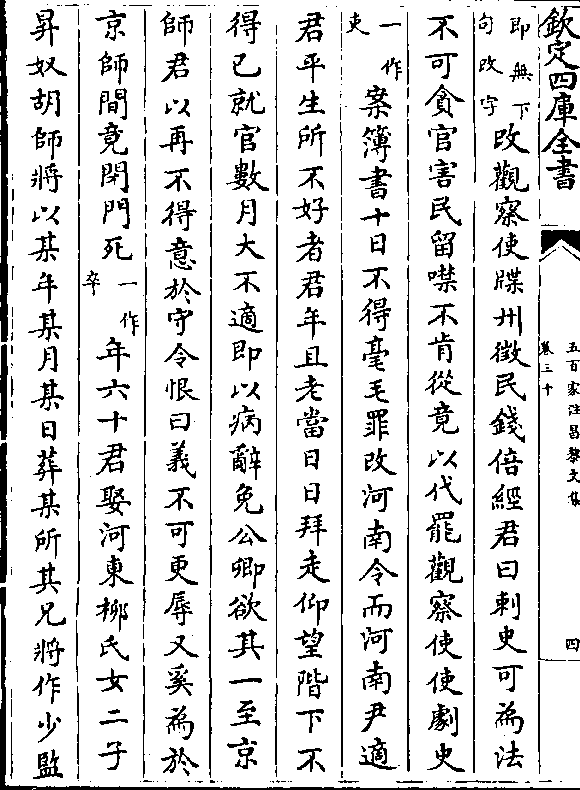 欽定四庫全書
五百家注昌黎文集
卷三十
四
即無下句改字改觀察使牒州徵民錢倍經君曰刺史可為法
不可貪官害民留噤不肯從竟以代罷觀察使使劇吏
一作史案簿書十日不得毫毛罪改河南令而河南尹適
君平生所不好者君年且老當日日拜走仰望階下不
得已就官數月大不適即以病辭免公卿欲其一至京
師君以再不得意於守令恨曰義不可更辱又奚為於
京師間竟閉門死一作卒年六十君娶河東柳氏女二子
昇奴胡師將以某年某月某日葬某所其兄將作少監